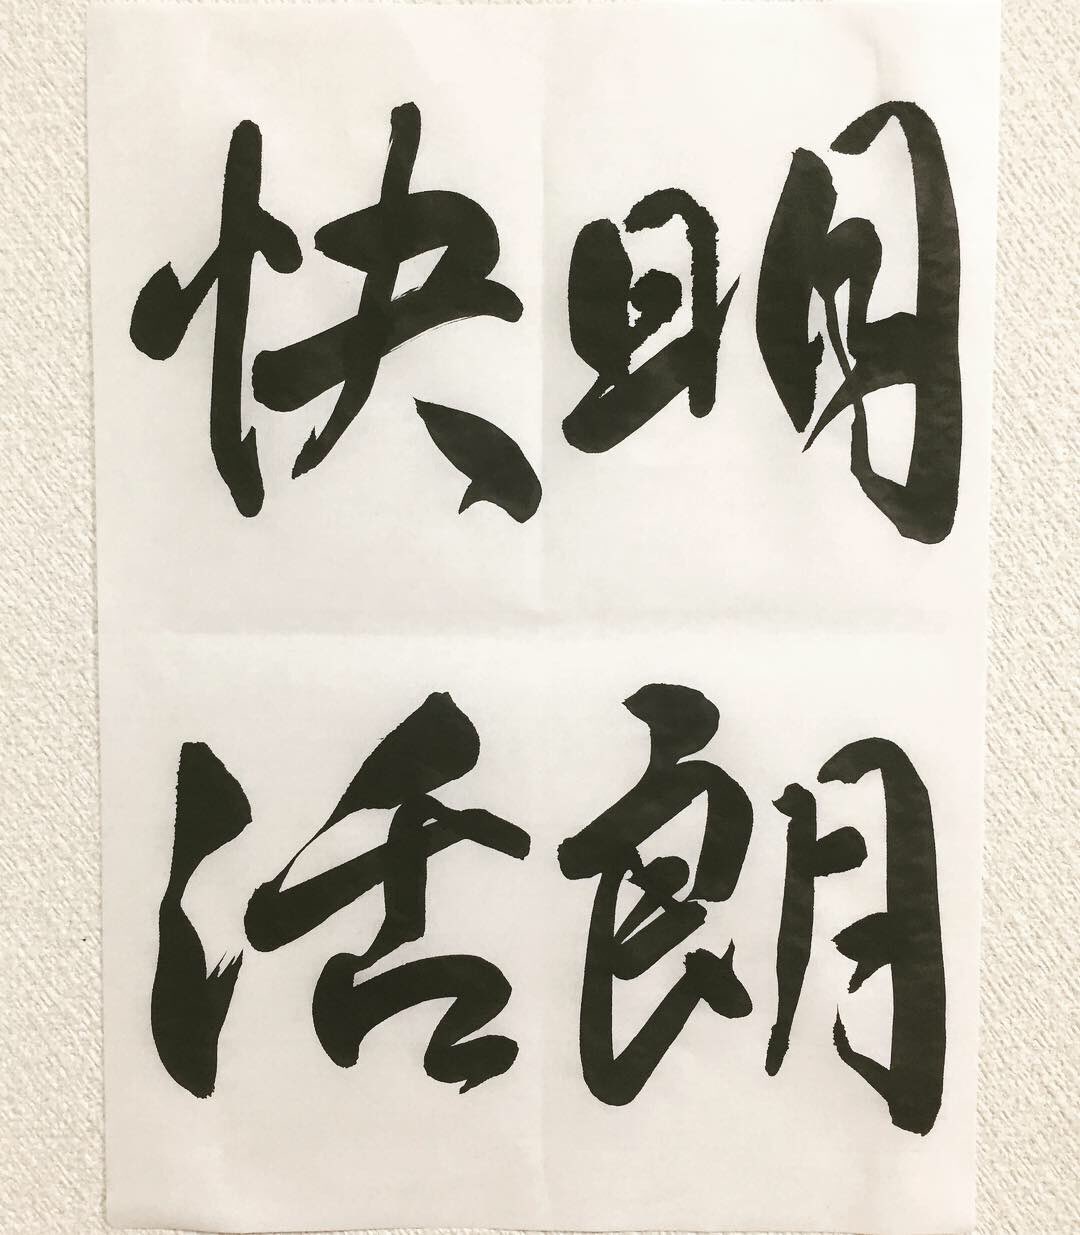 明朗
快活